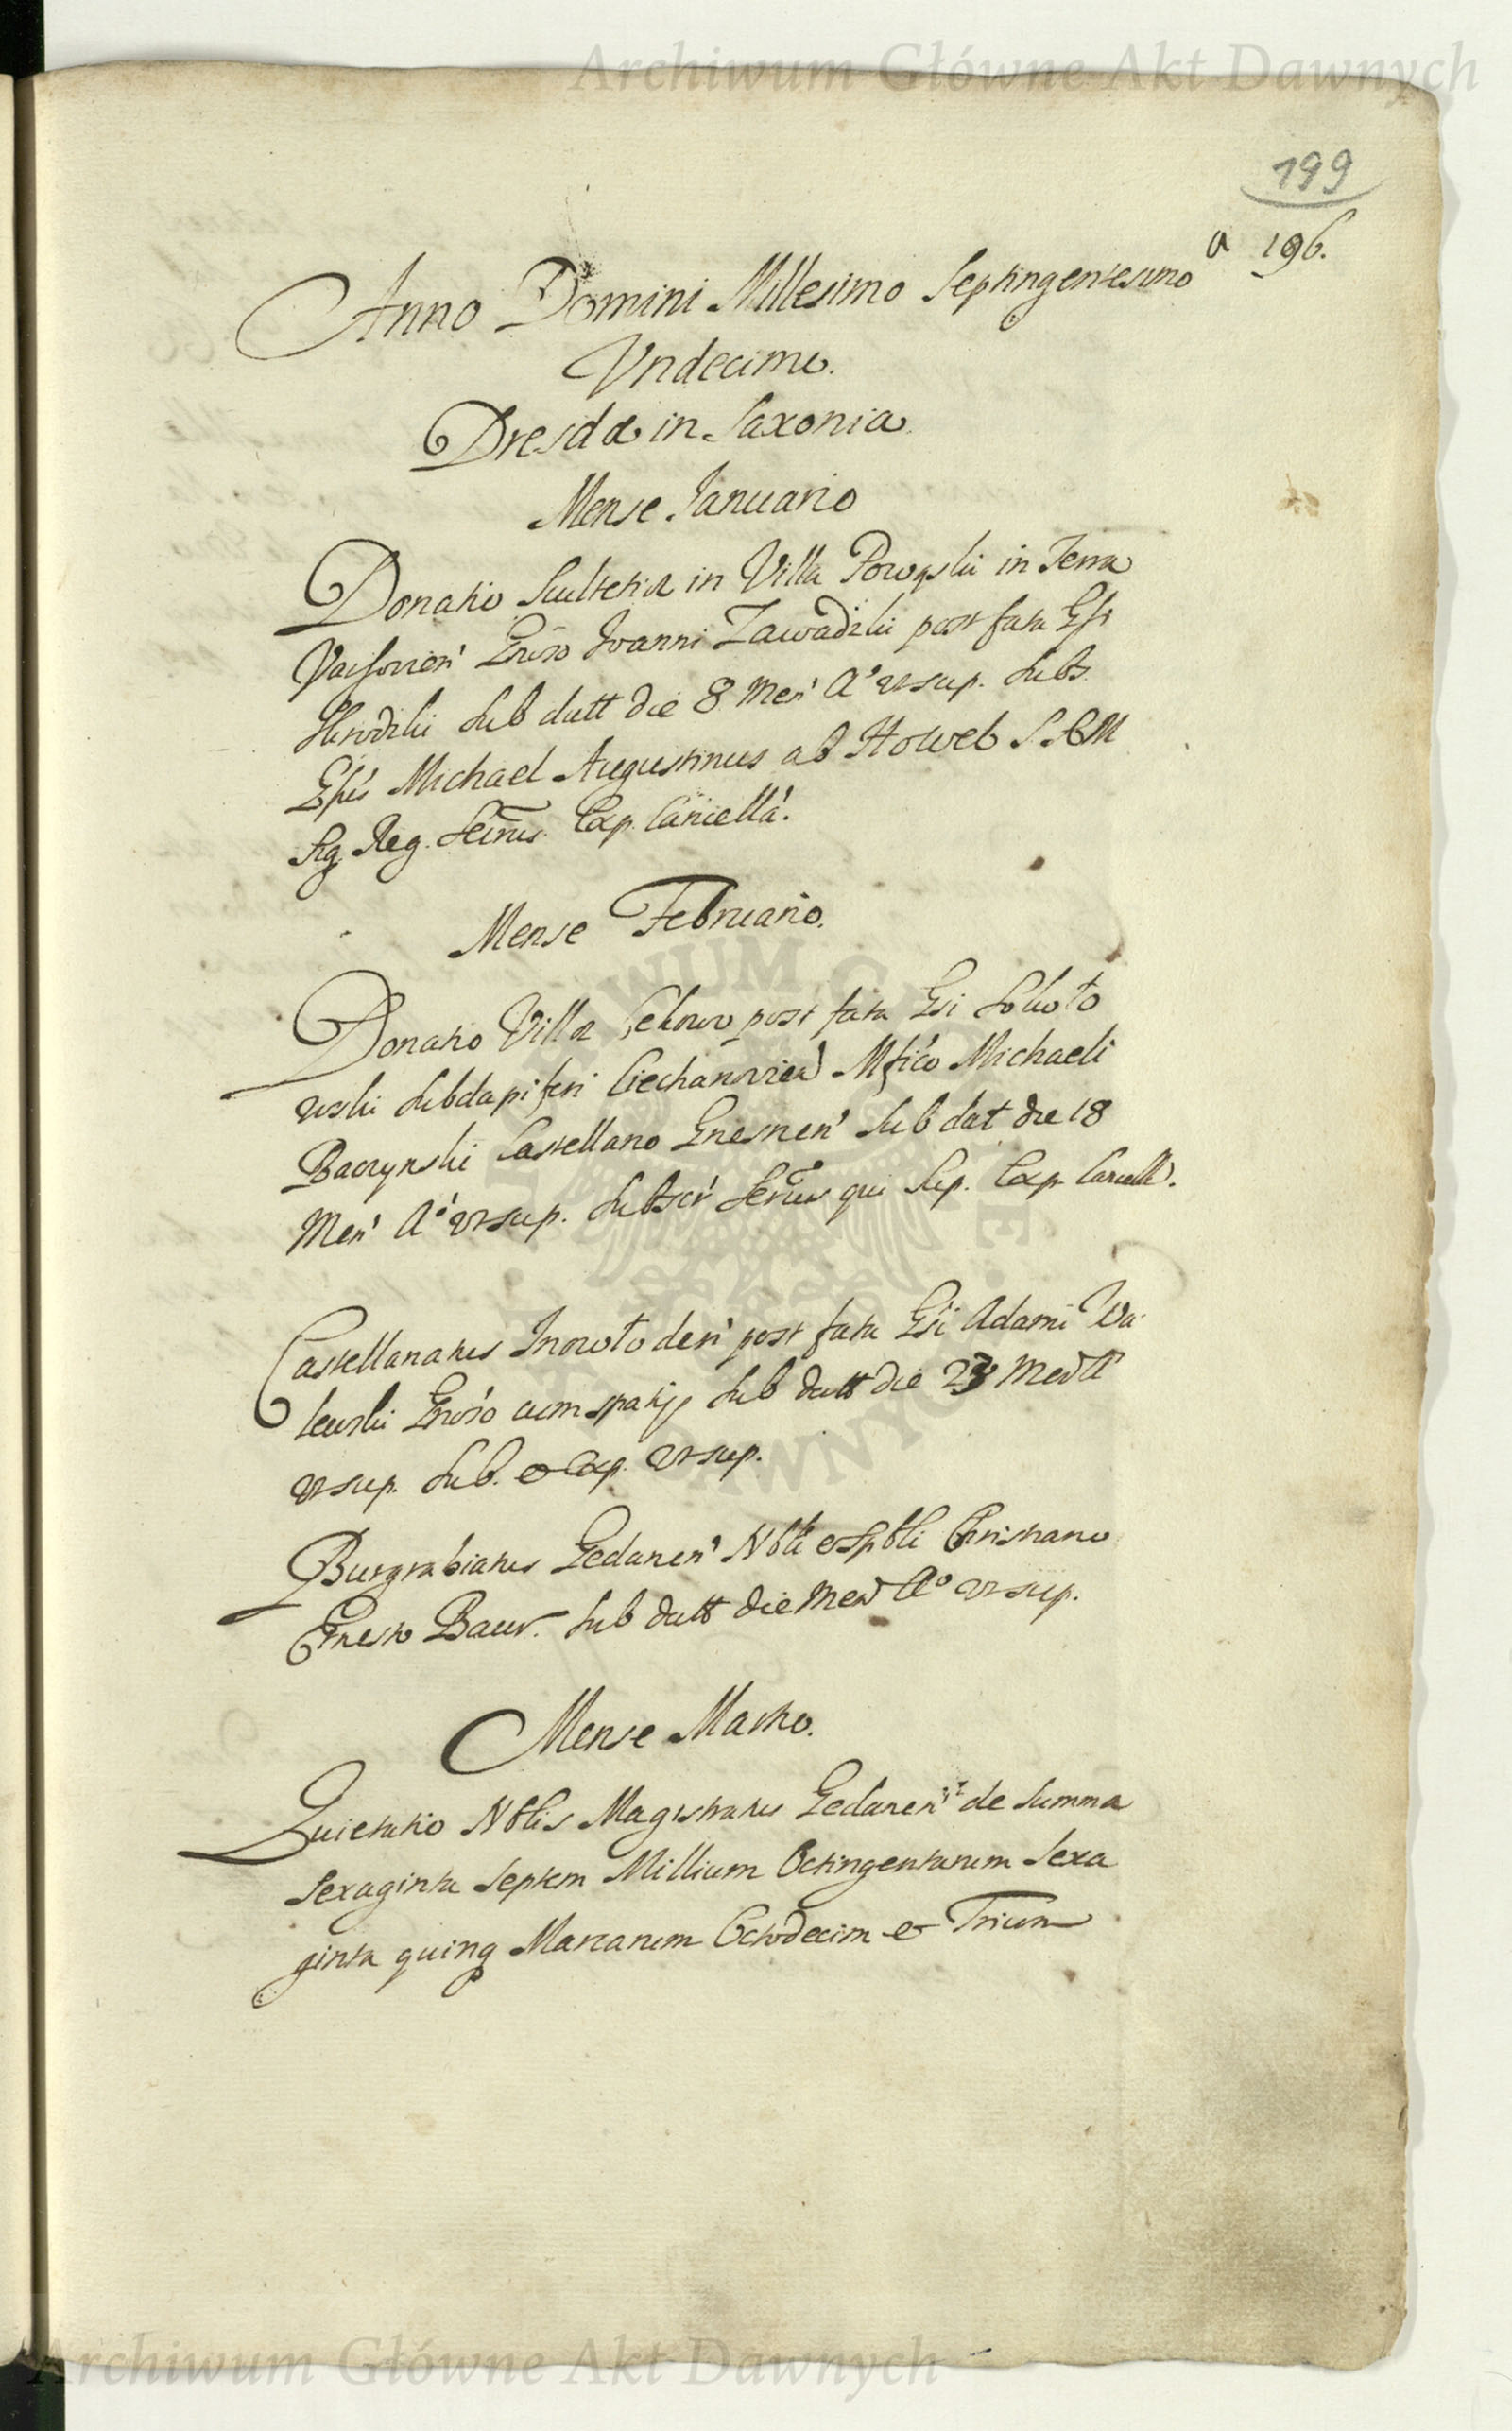 Archiwum Główne Akt Dawnych
199
a 196.
Anno Domini Millesimo Septingentesimo
Vndecimo.
Dresdæ in Saxonia.
Mense Ianuario
Donatio Scultetiæ in Villa Powąski in Terra
Varsovien' Gnŕoso Ioanni Zawadzki post fata Gsi
sub datt die 8 Men' Aº ut sup. Subs.
Gsus Michael Augustinus ab Howel S. R M
Sig. Reg. Secrius. Exp. Cancella'.
Mense Februario.
Donatio Villæ post fata Gsi Sokoło
wski Subdapiferi Ciechanovien' Mfico Michaeli
Baczynski Castellano Gnesnen' Sub dat die 18
Men' Aº ut sup. Subscr' Secrius qui Sup. Exp. Cancell.
Castellanatus Inowłoden' post fata Gsi Adami Wa
lewski Gnŕoso cum spatijs Sub datt die 23 Men' Aº
ut sup. Sub. et Exp. ut sup.
Burgrabiatus Gedanen' Nbli et Spbli Christiano
Ernesto Bauer. Sub datt die Men' Aº ut sup.
Mense Martio.
Quietatio Nblis Magistratus Gedanen' de summa
Sexaginta Septem Millium Octingentarum Sexa
ginta quinq Marcarum Octodecim et Trium
ARCHIWUM GŁÓWNE AKT DAWNYCH
Archiwum Główne Akt Dawnych